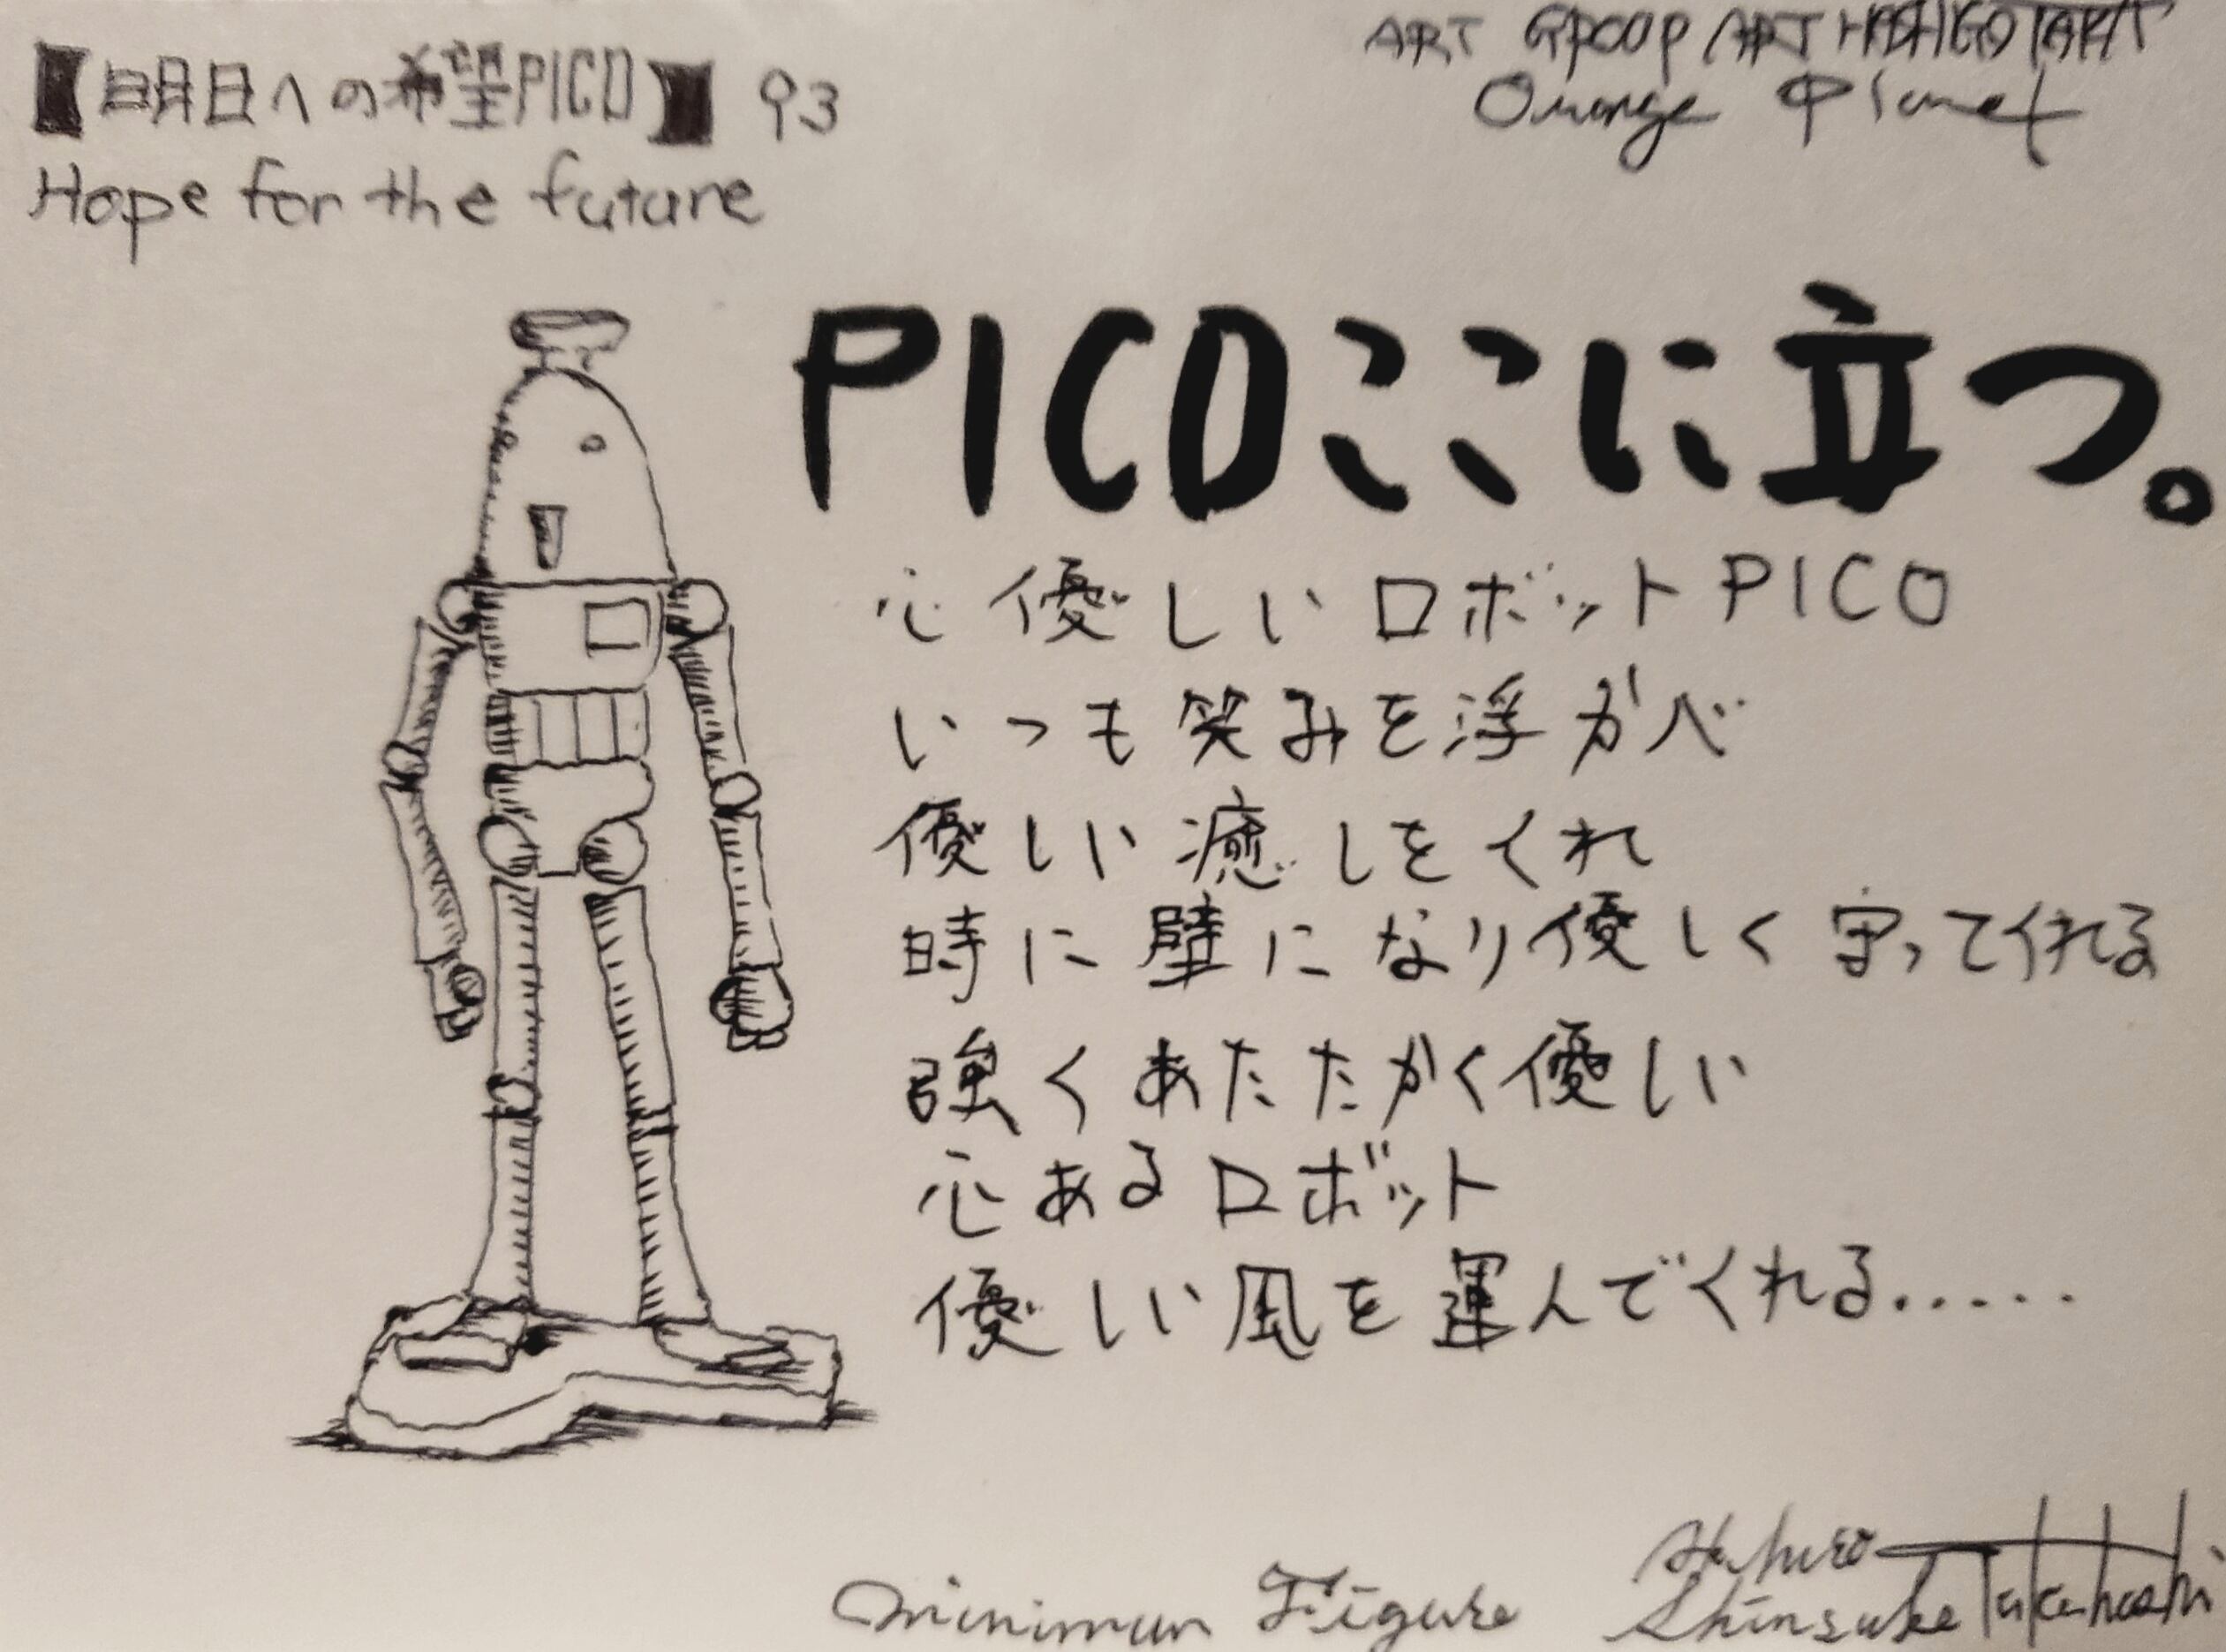 【明日への希望PICO】 93
Hope for the future
ART GROUP ART HASHIGOTAKA
Orange Planet
PICOここに立つ。
心優しいロボットPICO
いつも笑みを浮かべ
優しい癒しをくれ
時に壁になり優しく守ってくれる
強くあたたかく優しい
心あるロボット
優しい風を運んでくれる.....
minimum Figure
Shinsuke Takahashi